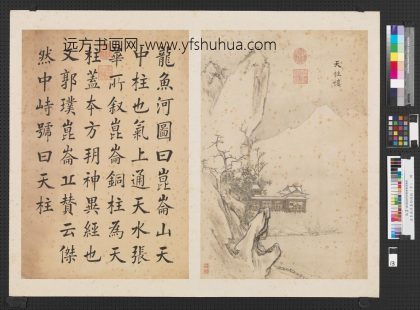 远方书画网:www.yfshuhua.com
天柱峰
龍魚河圖曰崑崙山天
中柱也氣上通天水張
華所叙崑崙銅柱為天
柱蓋本方玥神異經也
文郭璞崑崙丘賛云傑
然中峙號曰天柱